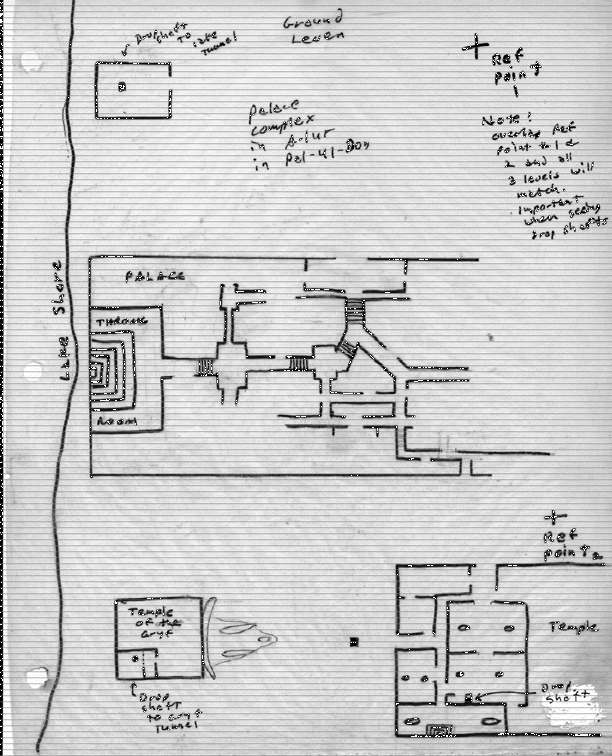 Ground
Level
Drop shaft
to lake
Tunnel
Ref
point
1
Palace
complex
in A-lur
in Pal-ul-Don
Note:
overlap Ref
point to 1 &
2 and all
3 levels will
match.
Important
when seeing
drop shafts
Lake Shore
PALACE
THRONE
ROOM
Ref
point 2
Temple
of the
Gryf
Temple
Drop
shaft
Drop
shaft
to Gryf
Tunnel